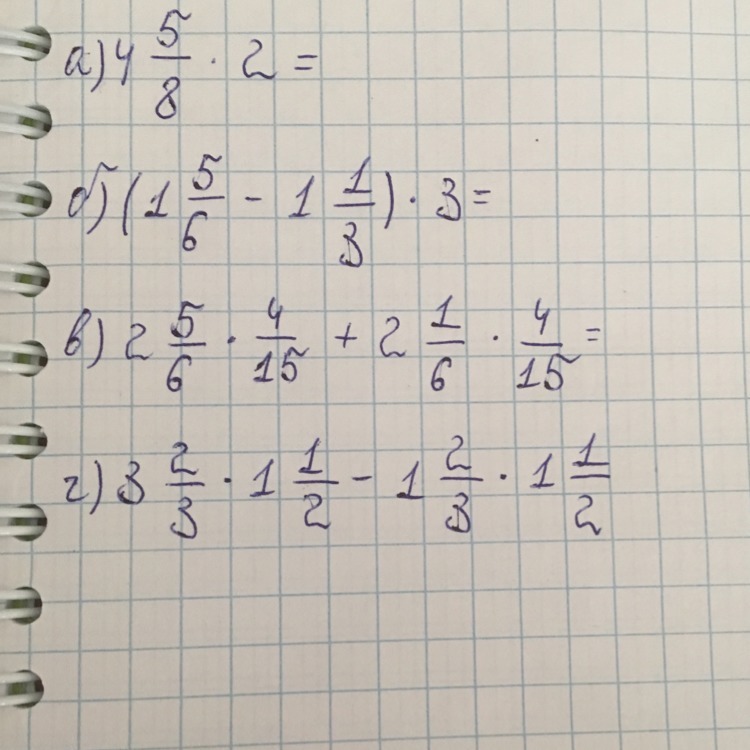 а) 4 5/8 · 2 =
б) (1 5/6 - 1 1/3) · 3 =
в) 2 5/6 · 4/15 + 2 1/6 · 4/15 =
г) 3 2/3 · 1 1/2 - 1 2/3 · 1 1/2